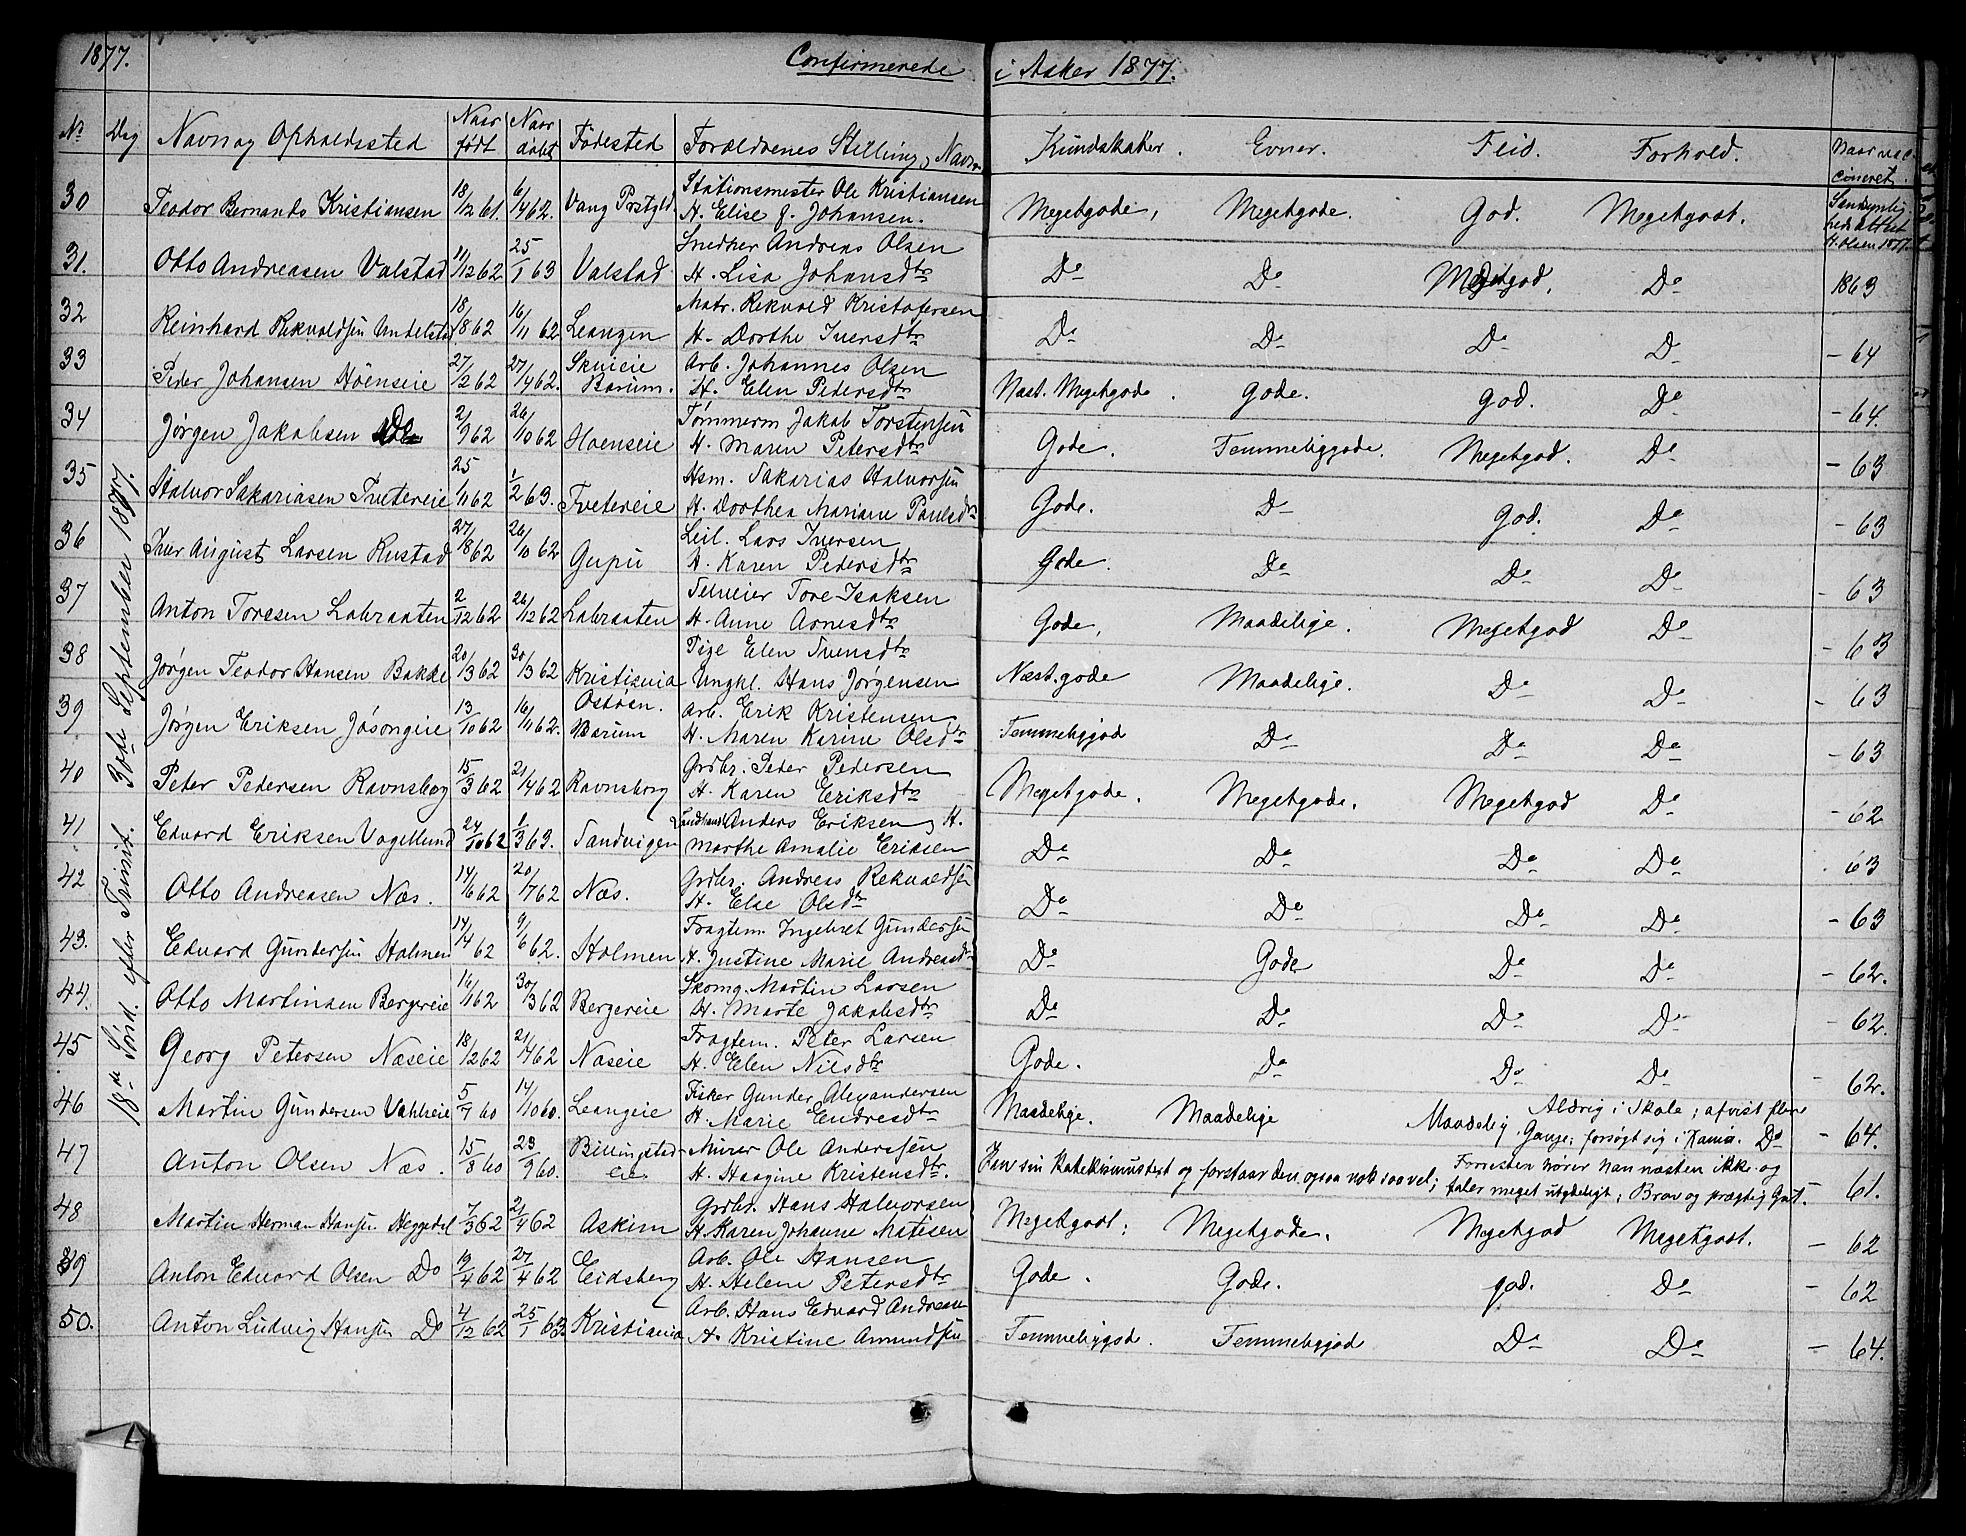 1877.
Confirmerede i Asker 1877.
No Dag Navn og Opholdssted Naar født Naar døbt Fødested Forældrenes Stilling, Navn Kundskaber. Evner. Flid. Forhold. Naar vaccineret.
30 Teodor Bernando Kristiansen 18/12 61. 6/4 62. Vang Prstgld. Stationsmester Ole Kristiansen
H. Elise f. Johansen. Megetgode, Megetgode. God. Megetgodt.
H. Olsen 1877.
31. Otto Andreasen Valstad 11/12 62 25/1 63 Valstad Snedker Andreas Olsen
H. Lisa Johansdtr Do Do Megetgod. Do 1863
32 Reinhard Rekvaldsen 18/8 62 16/11 62 Leangen Matr. Rekvald Kristofersen
H. Dorthe Iversdtr Do Do Do Do - 64
33 Peder Johansen Höenseie 27/2 62 27/4 62. Skuieie Barum. Arb. Johannes Olsen
H. Elen Pedersdtr Næst. Megetgode. Gode. God. Do - 64.
34 Jørgen Jakobsen Do 2/9 62 26/10 62 Hoenseie Tømmerm Jakob Torstensen
H. Maren Petersdtr Gode. Temmeliggode. Megetgod. Do - 63
35 Halvor Sakariasen Tvetereie 25/11 62 1/2 63. Tvetereie Hsm. Sakarias Halvorsen
H. Dorthea Mariane Paulsdr Gode. Do God. Do - 63
36 Iver August Larsen Rustad 27/8 62 26/10 62 Gupu Leil. Lars Iversen
H. Karen Pedersdtr Gode. Do Do Do - 63
37 Anton Toresen Labraaten 2/12 62 26/12 62 Labraaten Selveier Tore Isaksen
H. Anne Arnesdtr Gode, Maadelige. Megetgod Do - 63
38 Jørgen Teodor Hansen Bakke 20/3 62 30/3 62 Kristiania Pige Elen Svensdtr
Ungkl. Hans Jørgensen Næst. gode Maadelige. Do Do - 63
39 Jørgen Eriksen Jösongeie 13/10 62 16/11 62. Ostøen. Barum Arb. Erik Kristensen
H. Maren Karine Olsdtr Temmeliggod Do Do Do - 63
40 Peter Pedersen Ravnsborg 15/3 62 21/4 62 Ravnsborg Grdbr. Peder Pedersen
H. Karen Eriksdtr Megetgode. Megetgode. Megetgod Do - 62
41 Edvard Eriksen Vogellund 24/10 62 1/3 63. Sandvigen Landhandl Anders Eriksen, H.
Marthe Amalie Eriksen Do Do Do Do . 63
42 Otto Andreasen Næs. 14/6 62 20/7 62 Næs. Grdbr. Andreas Rekvaldsen
H. Else Olsdtr Do Do Do Do - 63
43. Edvard Gundersen Holmen 14/4 62 9/6 62. Holmen Fragtem Ingebret Gundersen
H. Justine Marie Andreasdtr Do Gode Do Do - 62.
44. Otto Martinsen Bergereie 16/1 62 30/3 62 Bergereie Skomg. Martin Larsen
H. Marte Jakobsdtr Do Do Do Do - 62.
45 Georg Petersen Næseie 18/12 62 21/4 62 Næseie Fragtem. Peter Larsen
H. Elen Nilsdtr Gode. Do Do Do - 62.
46 Martin Gundersen 5/7 60 14/10 60. Leangeie Fisker Gunder Alexandersen
H. Marie Endresdtr Maadelige. Maadelige Maadelig. Aldrig i Skole; afvist flere
Gange; forsøgt sig i Kania. Do - 64.
47 Anton Olsen Næs. 15/8 60 23/9 60. Billingstad eie Murer Ole Anderssen
H. Haagine Kristensdtr. Kan sin Katekismustext og forstaar den ogsaa nok saa vel; Forresten hører han næsten ikke og
taler meget utydeligt; Brav og prægtig Gut. - 61.
48 Martin Herman Hansen Heggedal 7/3 62 21/4 62 Askim Grdbr. Hans Halvorsen
H. Karen Johanne Matisen Megetgodt; Megetgode. Megetgod Megetgodt. - 62
49 Anton Edvard Olsen Do 9/4 62 27/4 62 Eidsberg Arb. Ole Hansen
H. Helene Petersdtr Gode. Gode. god. Do - 62
50. Anton Ludvig Hansen Do 4/12 62 25/1 63 Kristiania Arb. Hans Edvard Andreas
H. Kristine Amundsen Temmeliggod. Temmeliggod Do Do - 64.
18de Sønd. efter Trinit. 30te September 1877.